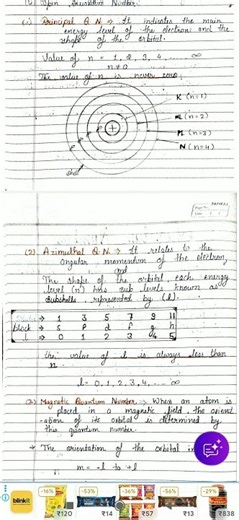 (i) Principal Q.N. → It indicates the main
energy level of the electron and the
shape of the orbital.
Value of n = 1, 2, 3, 4, ..... ∞
n ≠ 0
The value of n is never zero.
K (n=1)
L (n=2)
M (n=3)
N (n=4)
(2) Azimuthal Q.N. → It relates to the
angular momentum of the electron,
and
The shape of the orbital, each energy
level (n) has sub levels known as
subshells, represented by (l).
→ 1 3 5 7 9 11
block → s p d f g h
l → 0 1 2 3 4 5
value of l is always less than
n
l = 0, 1, 2, 3, 4, .... ∞
(3) Magnetic Quantum Number → When an atom is
placed in a magnetic field, the orient
-ation of its orbital is determined by
this quantum number.
→ The orientation of the orbital in
m = -l to +l
blinkit
-16%
₹120
-53%
₹14
-36%
₹57
-56%
₹13
-29%
₹838